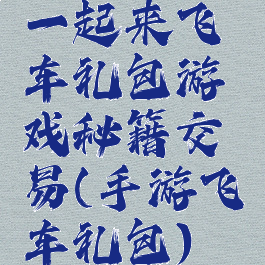 一起来飞
车礼包游
戏秘籍交
易(手游飞
车礼包)